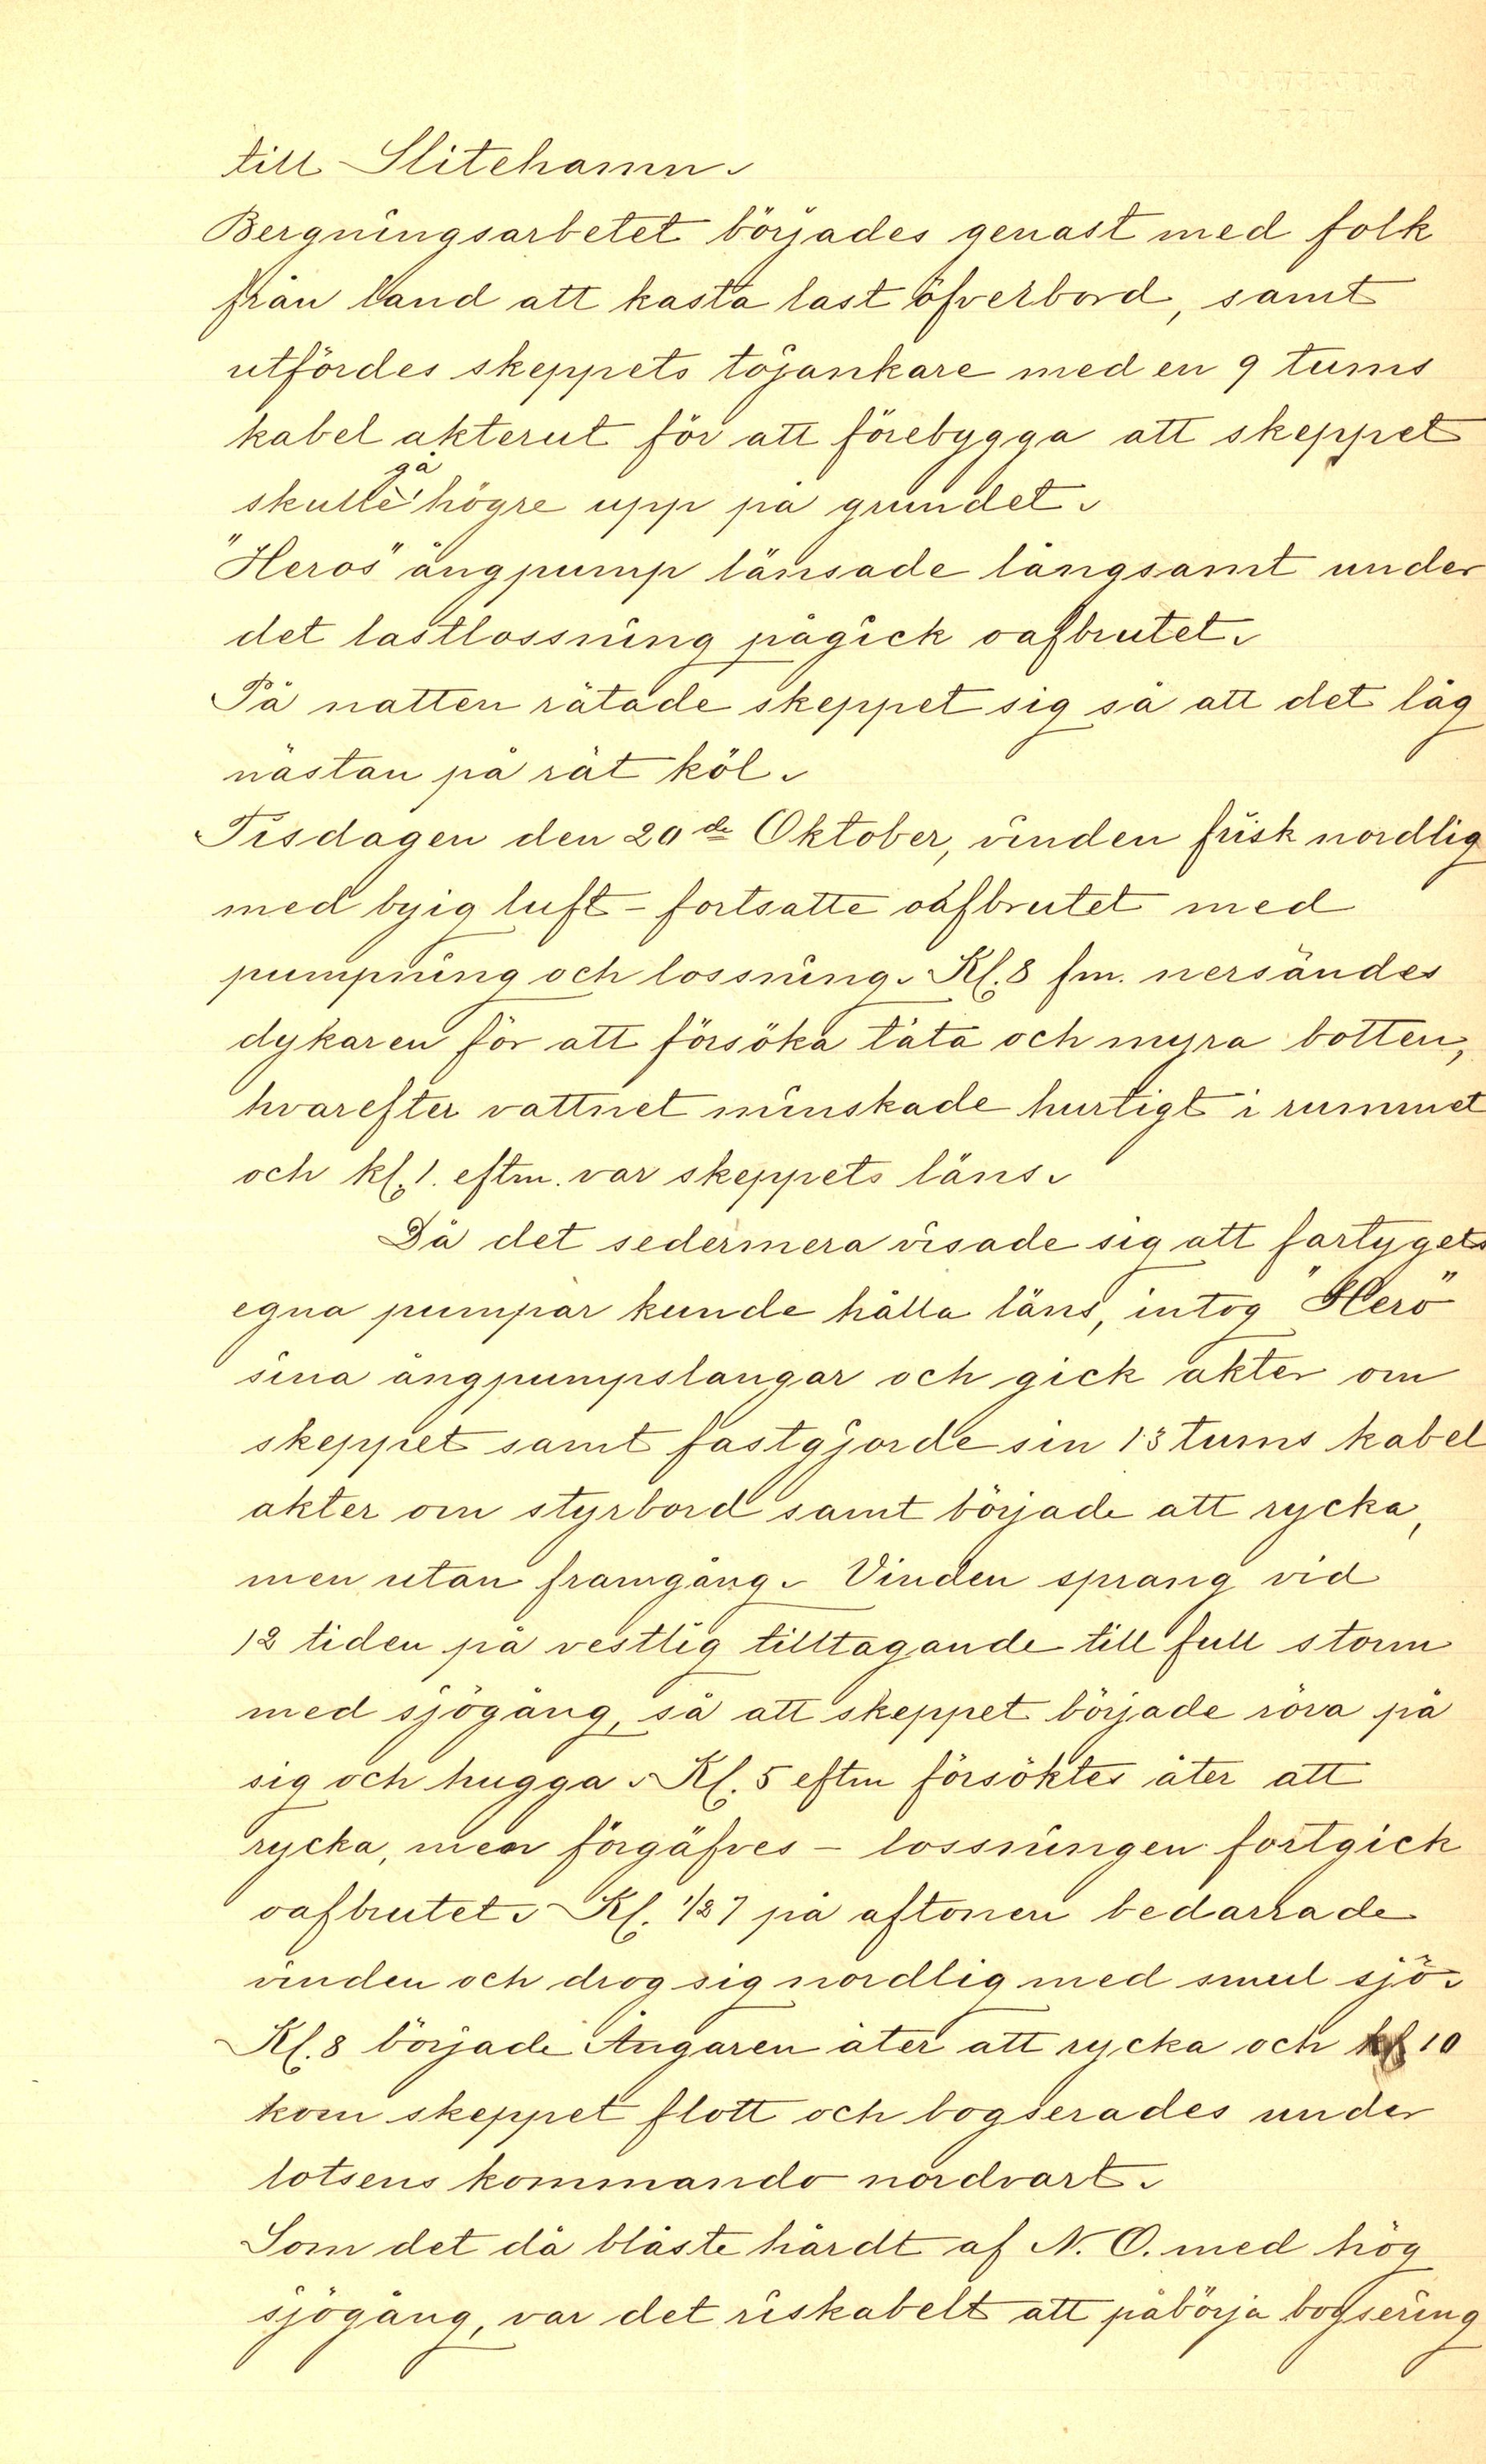 till Slitehamn.
Bergningsarbetet börjades genast med folk
från land att kasta last öfverbord, samt
utfördes skeppets töjankare med en 9 tums
kabel akterut för att förebygga att skeppet
skulle gå högre upp på grundet.
"Heros" ångpump länsade långsamt under
det lastlossning pågick oafbrutet.
På natten rätade skeppet sig så att det låg
nästan på rät köl.
Tisdagen den 20de Oktober, vinden frisk nordlig
med byig luft – fortsatte oafbrutet med
pumpning och lossning. Kl. 8 fm. nersändes
dykaren för att försöka täta och myra botten,
hvarefter vattnet minskade hurtigt i rummet
och kl. 1. eftm. var skeppets läns.
Då det sedermera visade sig att fartygets
egna pumpar kunde hålla läns, intog "Hero"
sina ångpumpslangar och gick akter om
skeppet samt fastgjorde sin 13 tums kabel
akter om styrbord samt började att rycka,
men utan framgång. Vinden sprang vid
12 tiden på vestlig tilltagande till full storm
med sjögång, så att skeppet började röra på
sig och hugga. Kl. 5 eftm försöktes åter att
rycka, men förgäfves – lossningen fortgick
oafbrutet. Kl. 1/2 7 på aftonen bedarrade
vinden och drog sig nordlig med smul sjö.
Kl. 8 började Ångaren åter att rycka och kl 10
kom skeppet flott och bogserades under
lotsens kommando nordvart.
Som det då blåste hårdt af N. O. med hög
sjögång, var det riskabelt att påbörja bogsering